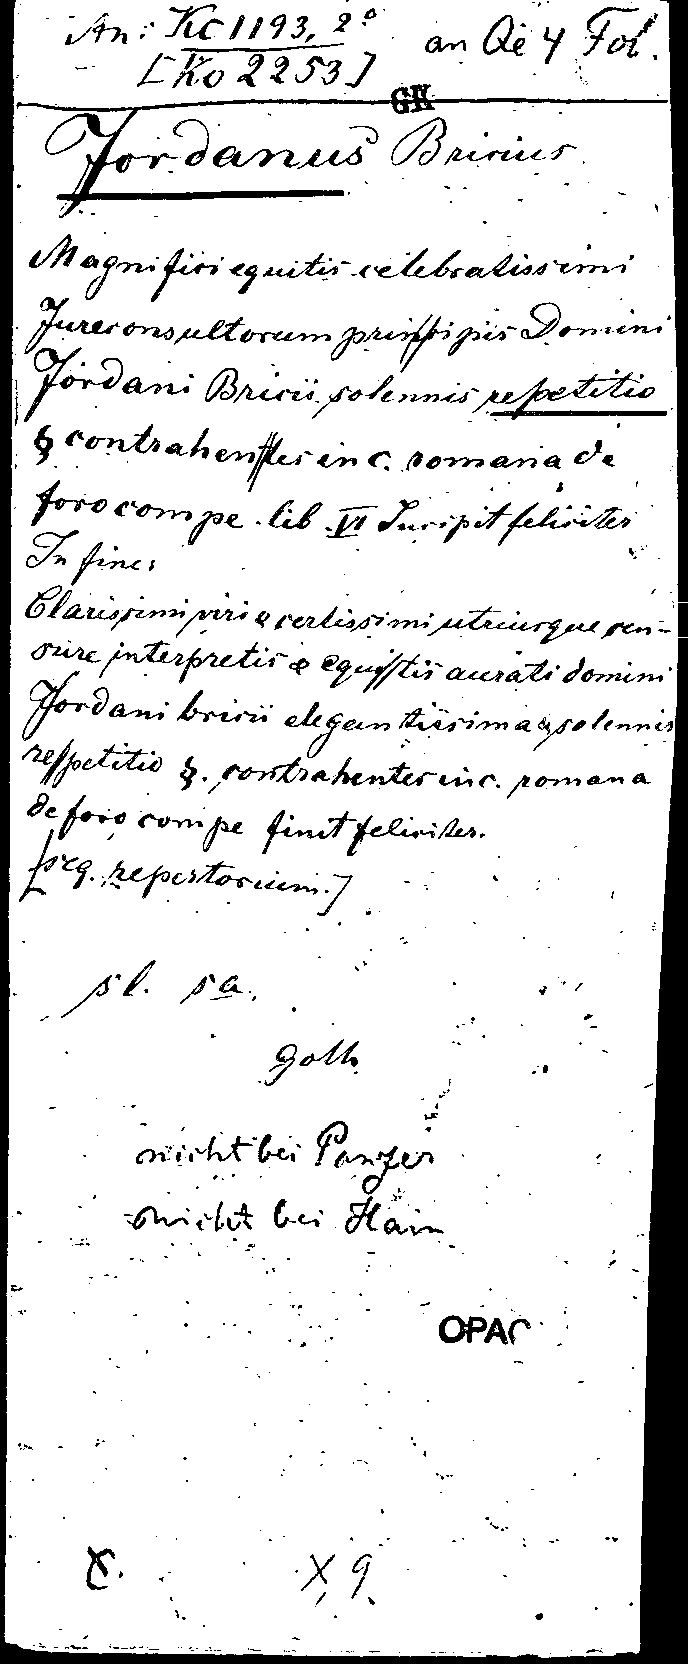 An: Kc 1193, 2° an Qe 4 Fol.
[Ko 2253]
GK
Jordanus Bricius
Magnifici equitis celebratissimi
Jureconsultorum principis Domini
Jordani Bricii solennis repetitio
§ contrahentes in c. romana de
foro compe. lib. VI Incipit feliciter
In fine:
Clarissimi viri & certissimi utriusque cen-
sure interpretis & equitis aurati domini
Jordani bricii elegantissima & solennis
repetitio §. contrahentes in c. romana
de foro compe finit feliciter.
[seq. repertorium.]
sl. sa.
goth
nicht bei Panzer
nicht bei Hain
OPAC
X 9